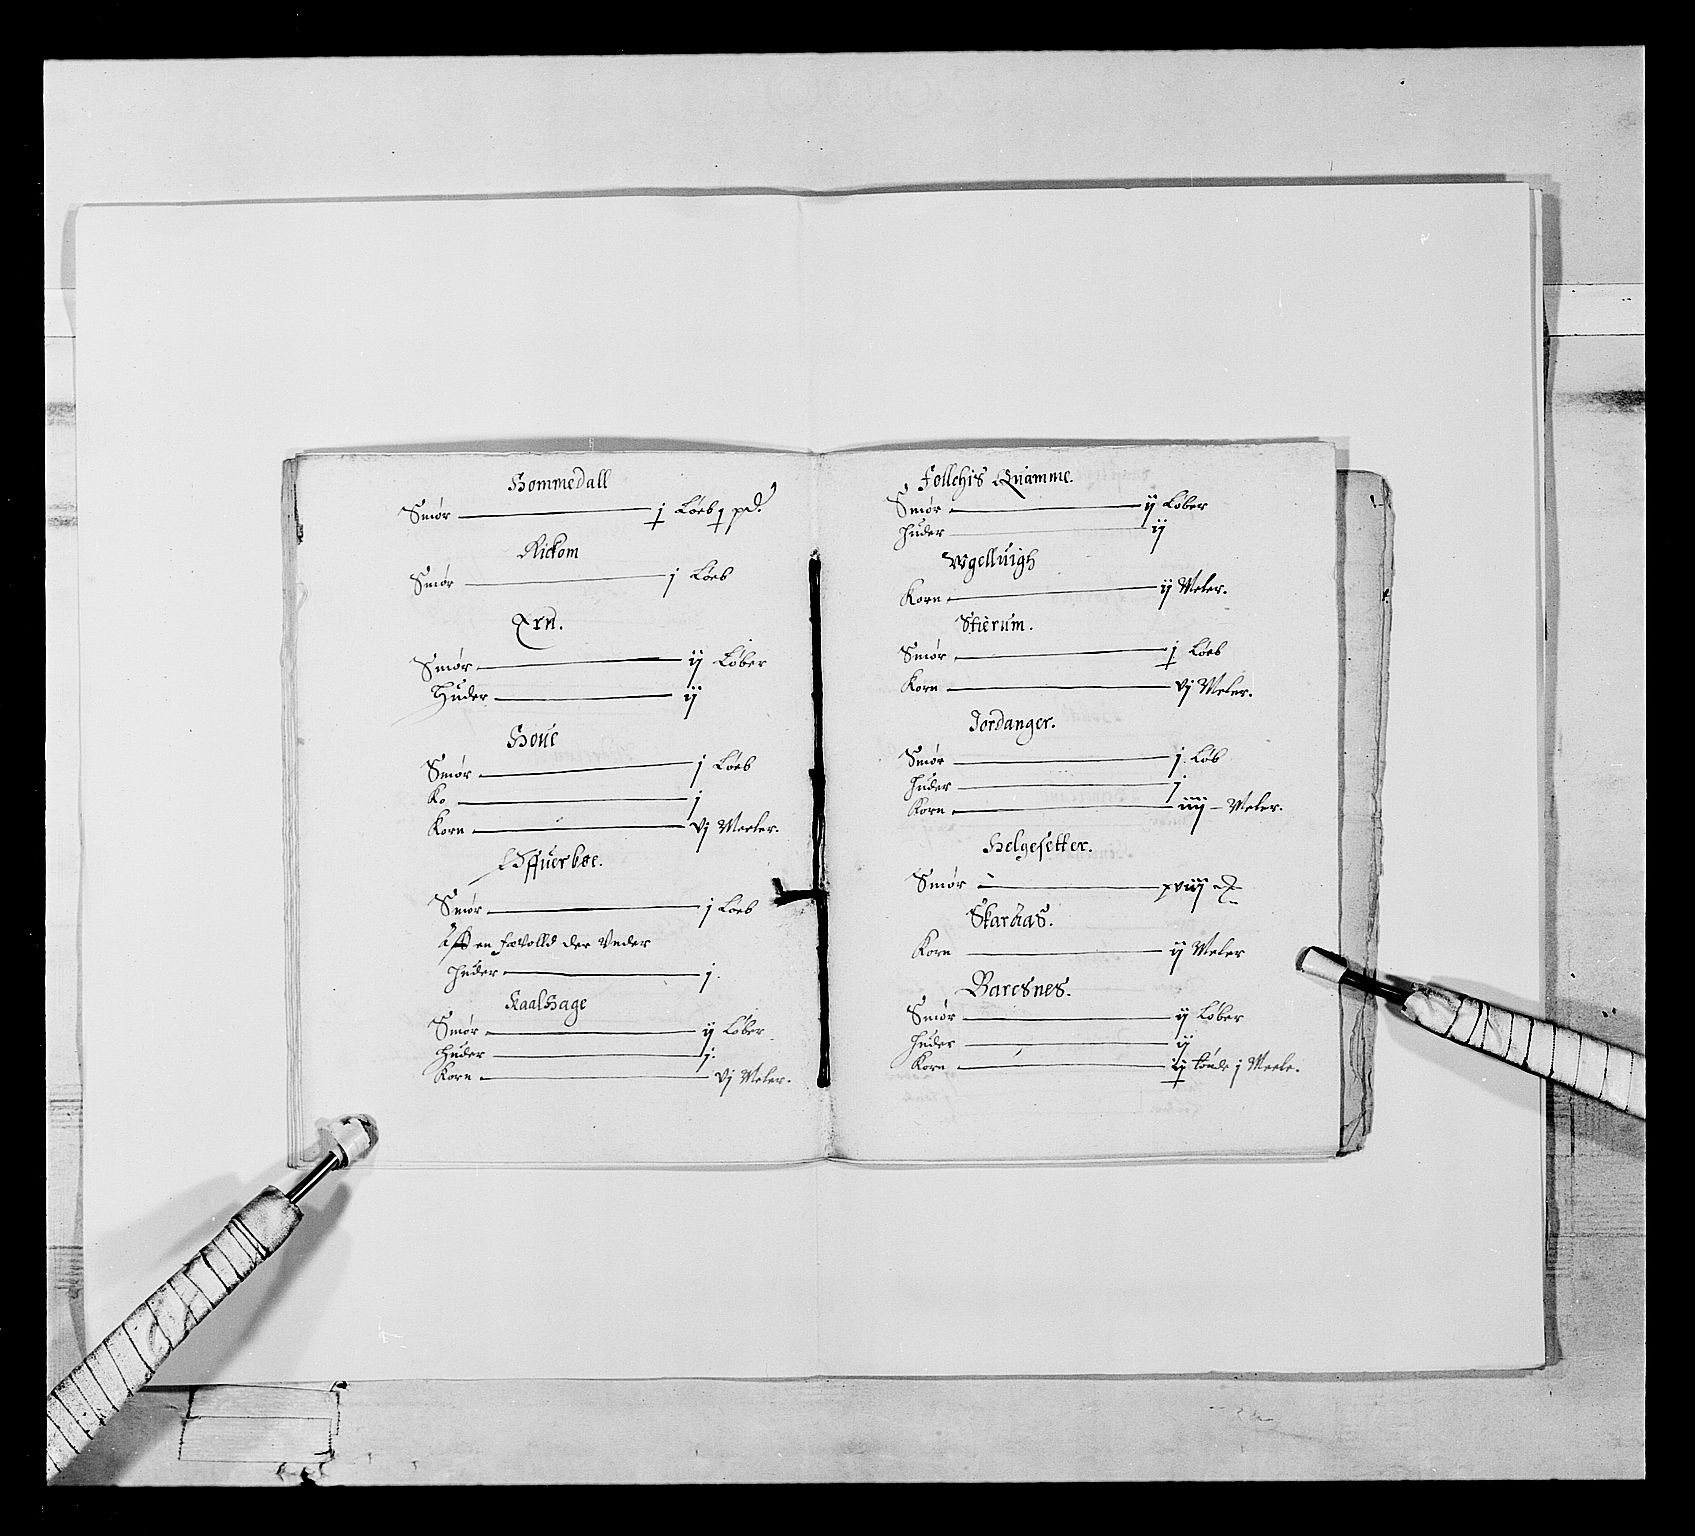 Hommedall
Smør j Løeb j pd.
Rickom
Smør j Løeb
Ern.
Smør ij Løber
Huder ij
Houe
Smør j Løeb
Ko j
Korn vj Meeler.
Øffuerbøe.
Smør j Løeb
Aff en fævolld der Vnder
Huder j.
Kaalhage
Smør ij Løber
Huder j.
Korn vj Meler.
Follchis Quamme.
Smør ij Løber
Huder ij
Wgelluigh
Korn ij Meler.
Stierum.
Smør j Løeb
Korn vj Meler.
Jordanger.
Smør j Løb
Huder j
Korn iiij Meler.
Helgesetter.
Smør xviij
Skardas.
Korn ij Meler
Baresnes.
Smør ij Løber
Huder ij
Korn ij tønde j Meele.